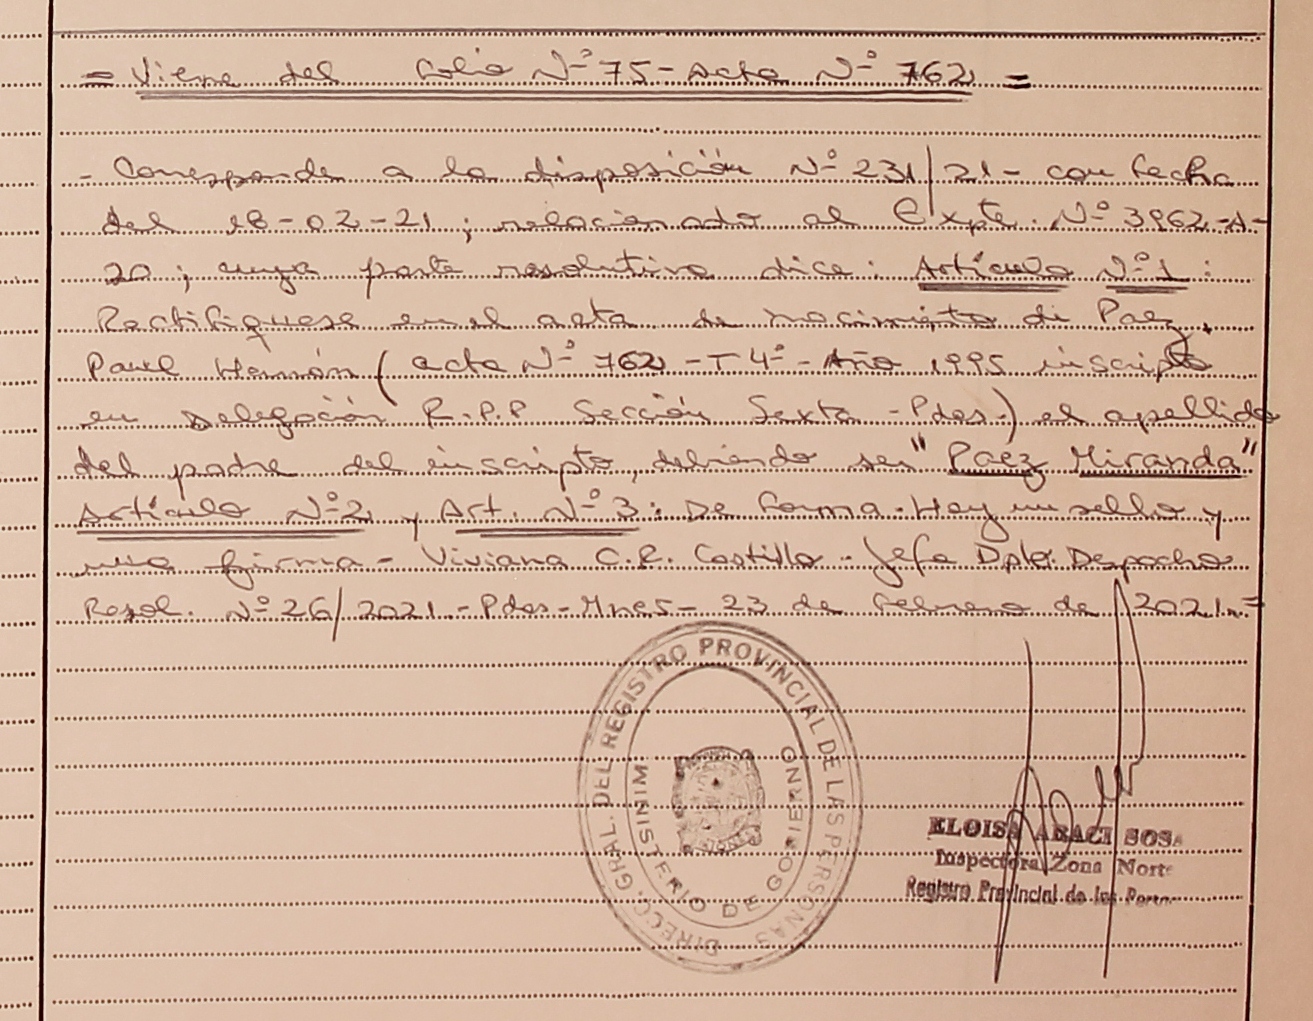 = Viene del Folio Nº 75 - Acta Nº 762 =
- Corresponde a la disposición Nº 231/21 - con fecha
del 18-02-21; relacionado al Expte. Nº 3962-A-
20; cuya parte resolutiva dice: Artículo Nº 1:
Rectifíquese en el acta de nacimiento de Paez,
Paul Hernán (acta Nº 762 - T 4º - Año 1995 inscripto
en Delegación R.P.P Sección Sexta - Pdas.) el apellido
del padre del inscripto, debiendo ser "Paéz Miranda"
Artículo Nº 2 y Art. Nº 3: De forma. Hay un sello y
una firma - Viviana C.R. Castillo - Jefa Dpto. Despacho
Resol. Nº 26/2021 - Pdas - Mnes - 23 de febrero de 2021. =
DIRECC. GRAL. DEL REGISTRO PROVINCIAL DE LAS PERSONAS
MINISTERIO DE GOBIERNO
ELOISA ARACI SOSA
Inspectora Zona Norte
Registro Provincial de las